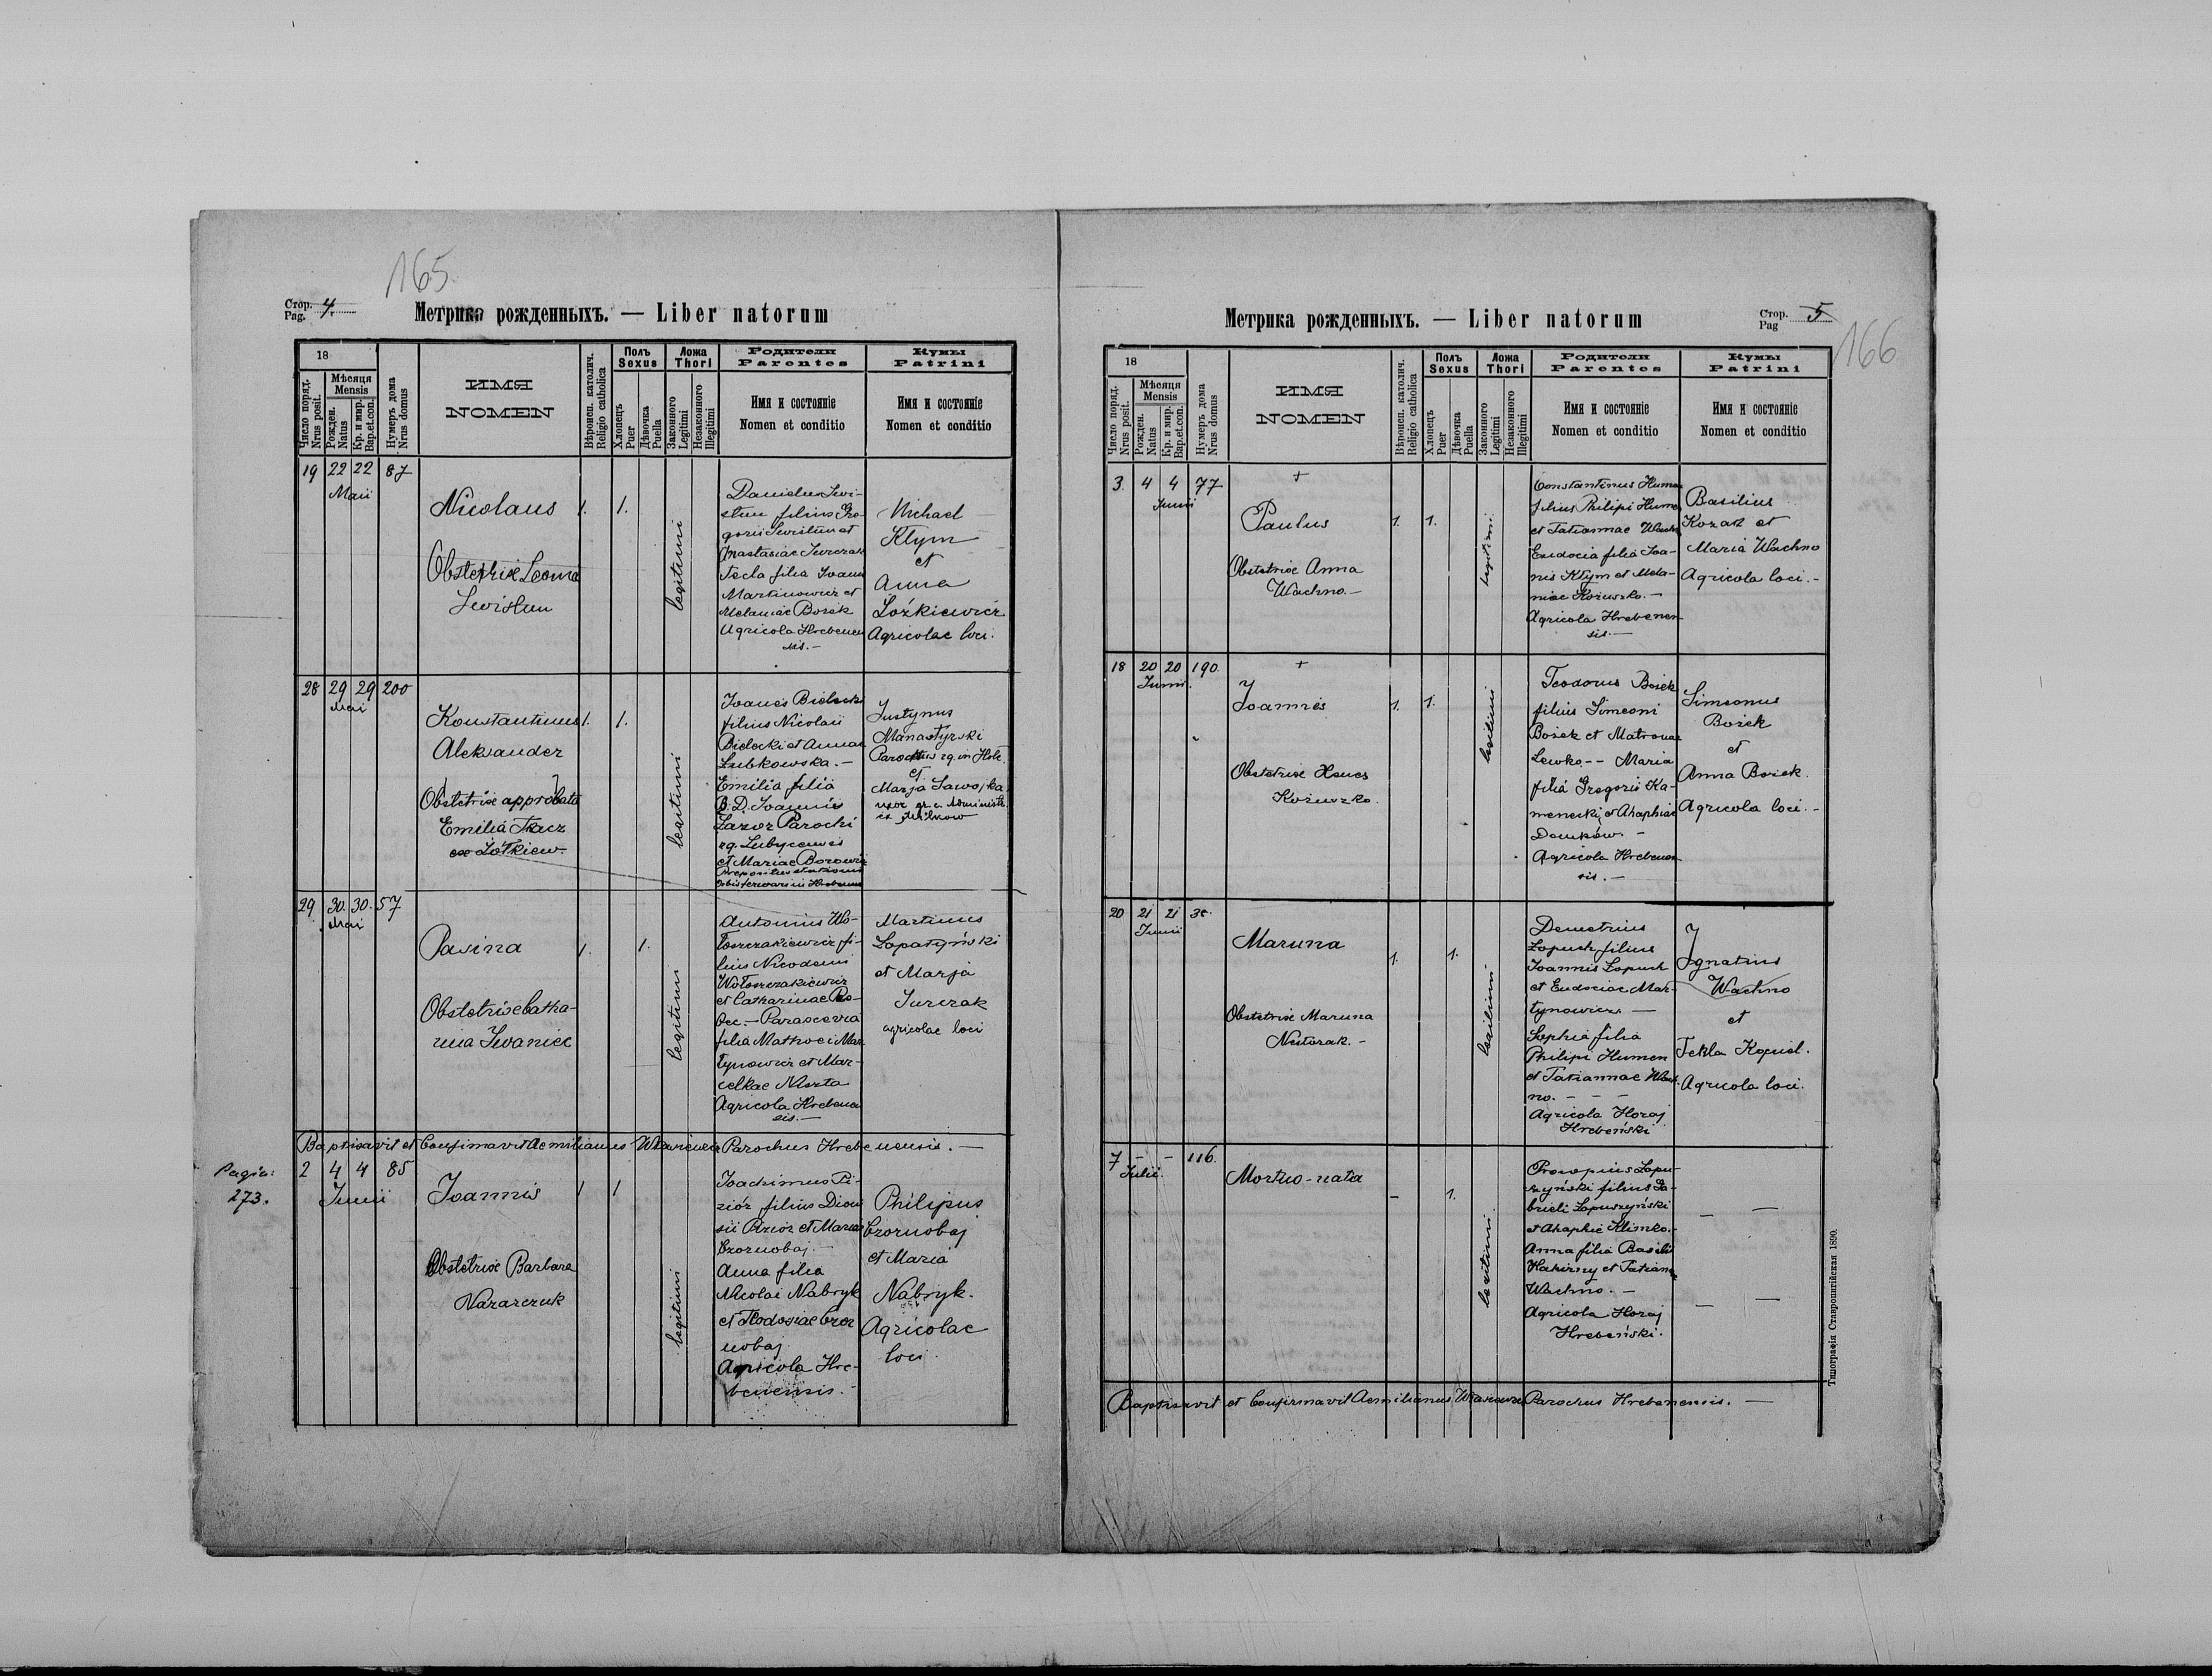 165.
Стор. 4.
Pag.
Метрика рожденныхъ. — Liber natorum
18
Число поряд.
Nrus posit.
Мѣсяця
Mensis
Рожден.
Natus
Кр. и мир.
Bap.et.con.
Нумеръ дома
Nrus domus
ИМЯ
NOMEN
Вѣроисп. католич.
Religio catholica
Полъ
Sexus
Хлопецъ
Puer
Дѣвочка
Puella
Ложа
Thori
Законного
Legitimi
Незаконного
Illegitimi
Родители
Parentes
Имя и состояніе
Nomen et conditio
Кумы
Patrini
Имя и состояніе
Nomen et conditio
19 22 22 87
Maii
Nicolaus 1. 1.
Obstetrix
legitimi
filius Gre-
gorii
Anastasiae
Tecla filia
Martinowicz et
Melaniae Bosek
Agricola Hrebenen
sis.—
Michael
Kłym
et
Anna
Łoźkiewicz
Agricolae loci.
28 29 29 200
Mai
Konstantinus 1. 1.
Aleksander
Obstetrix approbata
Emilia Tkacz
ex Żółkiew.
legitimi
filius Nicolaii
Bielecki et Annae
Lubkowska.—
Emilia filia
B. D. Joannis
Łazor Parochi
et Mariae
Justynus
Manastyrski
et
Marja
29 30. 30. 57
Mai
Pasina 1. 1.
Obstetrix Catha-
rina Iwaniec
legitimi
Antonius Wo-
łoszczakiewicz fi-
lius Nicodemi
Wołoszczakiewicz
et Catharinae
Parascevia
filia
tynowicz et Mar-
celkae
Agricola Hrebenen
sis.—
Martinus
Łopatyński
et Marja
Jurczak
agricolae loci
Baptisavit et Confirmavit Aemilianus Parochus Hrebenensis.—
Pagin:
273.
2 4 4 85
Junii
Joannis 1 1
Obstetrix Barbara
Nazarczuk
legitimi
Joachimus Pi-
ziór filius Dioni
sii Pizior et Mariae
Czornobaj —
Anna filia
Nicolai Nabryk
et Teodosiae Czor
nobaj
Agricola Hre-
benensis.—
Philipus
Czornobaj
et Maria
Nabryk.
Agricolae
loci.
166
Стор. 5
Pag
Метрика рожденныхъ. — Liber natorum
18
Число поряд.
Nrus posit.
Мѣсяця
Mensis
Рожден.
Natus
Кр. и мир.
Bap.et.con.
Нумеръ дома
Nrus domus
ИМЯ
NOMEN
Вѣроисп. католич.
Religio catholica
Полъ
Sexus
Хлопецъ
Puer
Дѣвочка
Puella
Ложа
Thori
Законного
Legitimi
Незаконного
Illegitimi
Родители
Parentes
Имя и состояніе
Nomen et conditio
Кумы
Patrini
Имя и состояніе
Nomen et conditio
3. 4 4 77
Junii
+
Paulus 1. 1.
Obstetrix Anna
Wachno.—
legitimi
Constantinus Humen
filius Philipi Humen
et Tatiannae Wachn
Eudocia filia Joa-
nis Kłym et Mela-
niae Kożuszko.—
Agricola Hrebenen
sis.—
Basilius
Kozak et
Maria Wachno
Agricola loci.—
18 20 20 190.
Junii.
+
Joannes 1. 1.
Obstetrix
Kożuszko.
legitimi
Teodorus Bosek
filius Simeoni
Bosek et Matronae
Lewko-- Maria
filia Gregorii Ka-
menecki et Ahaphiae
Dańków.—
Agricola Hrebenen
sis.—
Simeonus
Bosek
et
Anna Bosek.
Agricola loci.—
20 21 21
Junii
Maruna 1. 1.
Obstetrix Maruna
Nestorak.—
legitimi
Demetrius
Łopuch filius
Joannis Łopuch
et Eudociae Mar-
tynowicz. —
Sophia filia
Philipi Humen
et Tatiannae Wach
no. - - -
Agricola Horaj
Hrebeński
Ignatius
Wachno
et
Tekla
Agricola loci.
7 - - 116.
Julii.
Mortuo-nata - 1.
legitimi
Procopius Łopu-
szyński filius Ga-
brieli Łopuszyński
et Ahaphie Klimko.—
Anna filia Basili
et Tatianae
Wachno.—
Agricola Horaj
Hrebeński.
— —
— —
Baptisavit et Confirmavit Aemilianus Parochus Hrebenensis. —
Типографія Ставропигійская 1890.